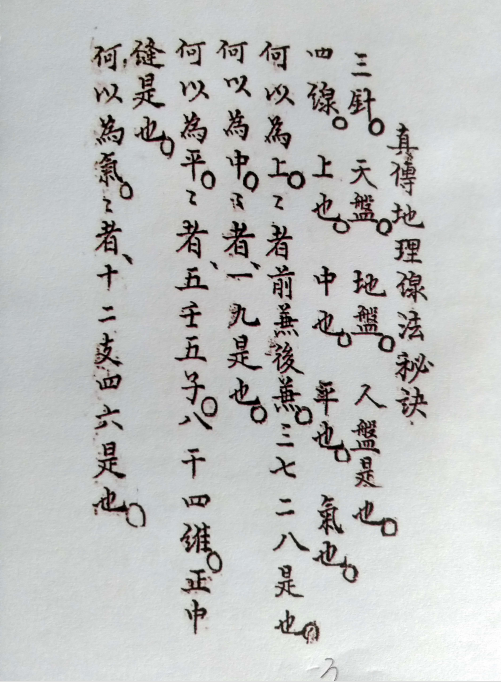 真傳地理線法秘訣
三針。天盤。地盤。人盤是也。
四線。上也。中也。平也。氣也。
何以為上。〻者前兼後兼。三七二八是也。
何以為中。〻者、一九是也。
何以為平。〻者、五壬五子。八干四維。正中
縫是也。
何以為氣。〻者、十二支四六是也。
3